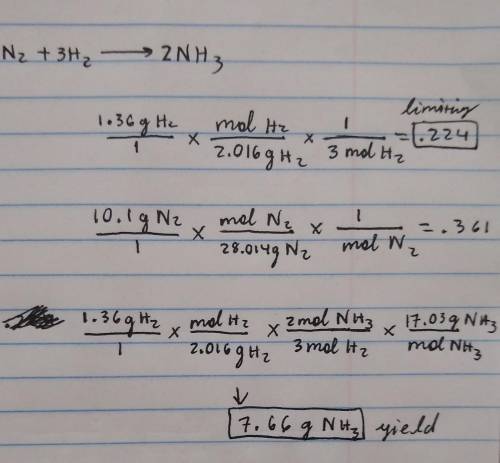 N₂ + 3H₂ ⟶ 2NH₃
limiting
1.36 g H₂/1 × mol H₂/2.016 g H₂ × 1/3 mol H₂ = .224
10.1 g N₂/1 × mol N₂/28.014 g N₂ × 1/mol N₂ = .361
1.36 g H₂/1 × mol H₂/2.016 g H₂ × 2 mol NH₃/3 mol H₂ × 17.03 g NH₃/mol NH₃
↓
7.66 g NH₃ yield